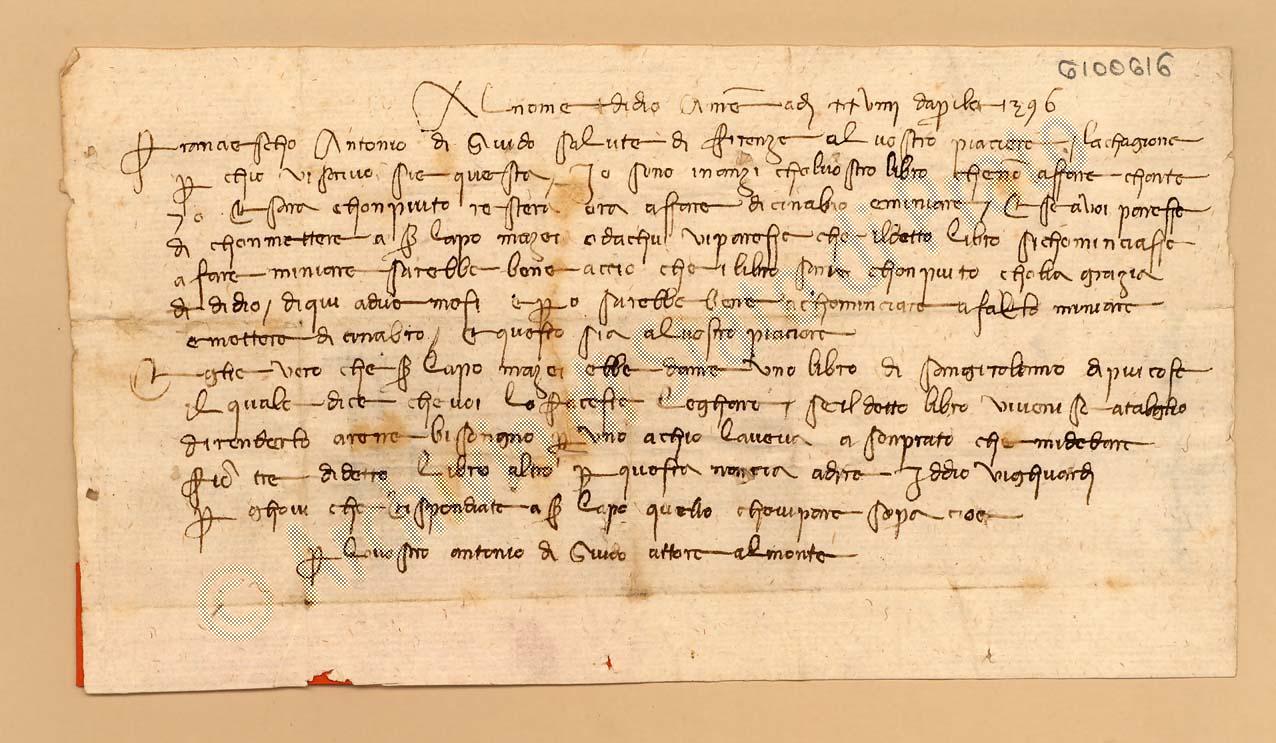 6100616
Al nome didio Amē adj xxviiij daprile 1396
Francescho Antonio di Guido salute di Firenze al vostro piacere / la chagione
p chio vi scrivo sie questa / Io sono inanzi cholvostro libro che nō affare charte
E sara chonpiuto restera ora affare di cinabro e miniare / E se avoi paresse
di chonmettere a s lapo mazei o da chui vi paresse che il detto libro si chominciasse
a fare miniare sarebbe bene accio che i libro sara chonpiuto cholla grazia
di didio / di qui a due mesi e p o sarebbe bene a chominciare a fallo miniare
e mettere di cinabro / E questo sia al vostro piacere
Eglie vero che s lapo mazei ebbe dame uno libro di sangirolimo di piu cose
il quale dice che voi lo facieste leghare / se il detto libro
di renderlo arene bisongno p uno a chio laveva a
tre di detto libro altro p questa non cia a dire Iddio vi ghuardi
p ghovi che rispondiate a s lapo quello che vi pare sopra cioe
p lo vostro antonio di Guido attore al monte
© Archivio di Stato di Prato